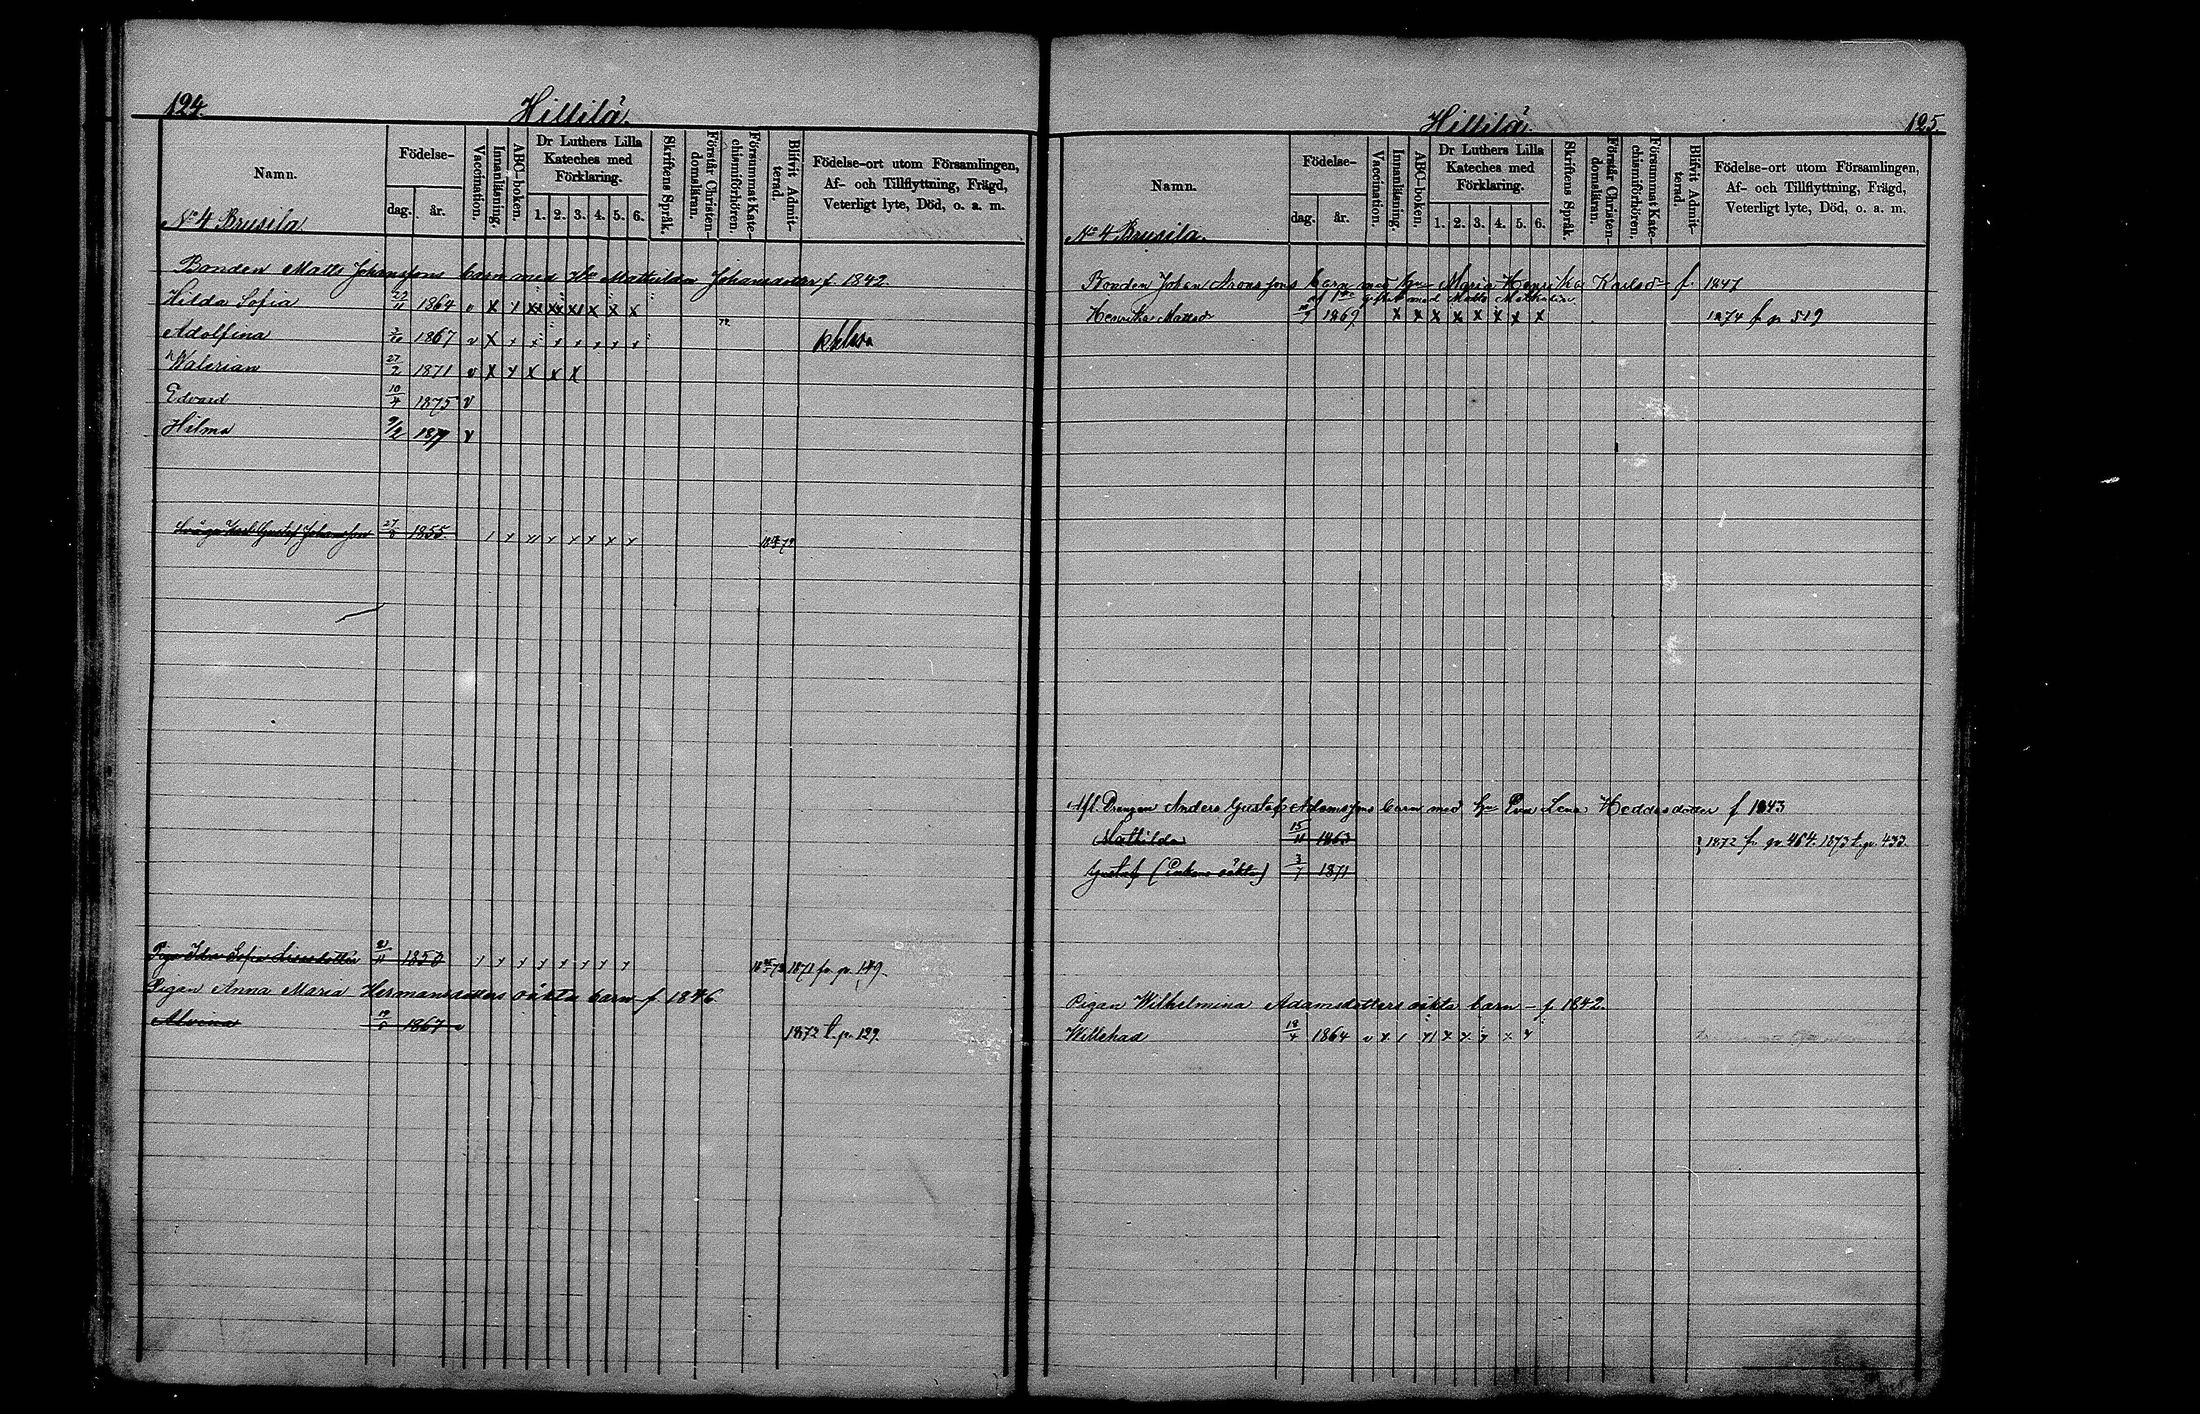 124.
Hillilä.
Namn.
Födelse-
dag.
år.
Vaccination.
Innanläsning.
ABC-boken.
Dr Luthers Lilla
Kateches med
Förklaring.
1. 2. 3. 4. 5. 6.
Skriftens Språk.
Förstår Christen-
domsläran.
Försummat Kate-
chismiförhören.
Blifvit Admit-
terad.
Födelse-ort utom Församlingen,
Af- och Tillflyttning, Frägd,
Veterligt lyte, Död, o. a. m.
No 4 Brusila
Bonden Matts Johanssons barn med Mathilda Johansdotter f. 1842
Hilda Sofia 22/11 1864 v x x xx xx xx x x x
Adolfina 1867 v x
Walerian 27/2 1871 v x x x x x
Edvard 10/4 1875 v
Hilma 9/2 v
Karl Gustaf Johansson 1855
Piga Sofia 1850 1871 fr. p. 149.
Pigan Anna Maria Hermansdotters oäkta barn f. 1846
Alvina 1867 v 1872 t. p. 129.
Hillilä.
125.
Namn.
Födelse-
dag.
år.
Vaccination.
Innanläsning.
ABC-boken.
Dr Luthers Lilla
Kateches med
Förklaring.
1. 2. 3. 4. 5. 6.
Skriftens Språk.
Förstår Christen-
domsläran.
Försummat Kate-
chismiförhören.
Blifvit Admit-
terad.
Födelse-ort utom Församlingen,
Af- och Tillflyttning, Frägd,
Veterligt lyte, Död, o. a. m.
No 4 Brusila.
Bonden Johan Aronssons barn med Maria Henrika Karlsd f. 1847
gift med Matts
Henrika Mattsd 1869 x x x x x x x x 1874 f p 519
Afl. Drengen Anders Gustaf Adamssons barn med Eva Lena Heddasdotter f 1843
Mathilda 15/11 1863 1872 fr. p. 464. 1873 t. p. 433.
Gustaf (Enkans oäkta) 3/7 1871
Pigan Wilhelmina Adamsdotters oäkta barn - f 1842.
Willehad 18/4 1864 v